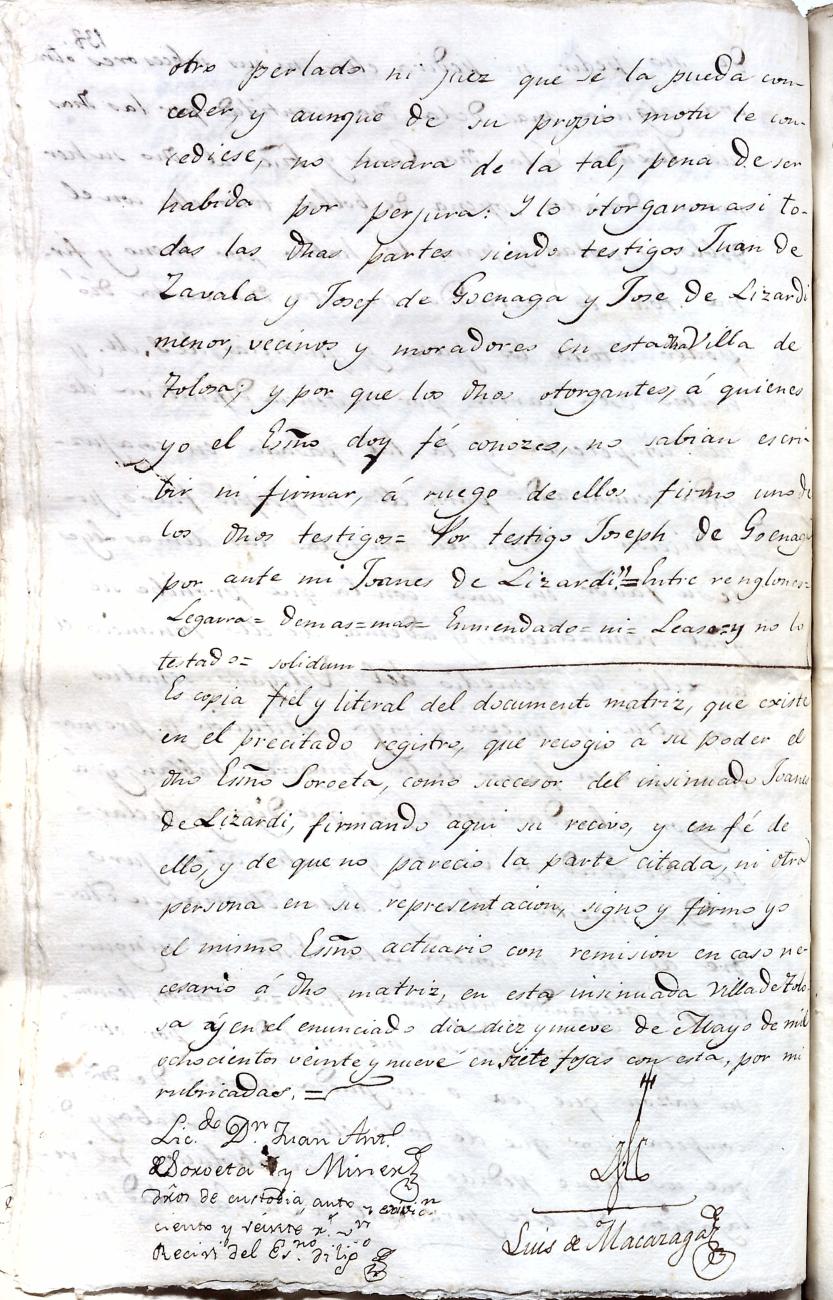 otro perlado ni juez que se la pueda con-
ceder, y aunque de su propio motu le con-
cediese, no husara de la tal, pena de ser
habida por perjura: Y lo otorgaron asi to-
das las dhas partes siendo testigos Juan de
Zavala y Josef de Goenaga y Jose de Lizardi
menor, vecinos y moradores en esta dha Villa de
Tolosa; y por que los dhos otorgantes, á quienes
yo el Esñno doy fé conozco, no sabian escri-
bir ni firmar, á ruego de ellos firmo uno de
los dhos testigos= Por testigo Joseph de Goenaga
por ante mi Joanes de Lizardi = Entre renglones=
Legarra= demas=mas= Enmendado= ni= Lease=y no lo
testado= solidum
Es copia fiel y literal del documento matriz, que existe
en el precitado registro, que recogio á su poder el
dho Esñno Soroeta, como succesor del insinuado Joanes
de Lizardi, firmando aqui su recivo, y en fé de
ello, y de que no parecio la parte citada, ni otra
persona en su representacion, signo y firmo yo
el mismo Esñno actuario con remision en caso ne-
cesario á dho matriz, en esta insinuada Villa de Tolo-
sa á y en el enunciado dia diez y nueve de Mayo de mil
ochocientos veinte y nueve en siete fojas con esta, por mi
rubricadas. =
Lic.do Dn Juan Ant.
Soroeta y Miner
dros de custodia
ciento y veinte rs. vn
Recivi del Es.no
Luis de Macazaga